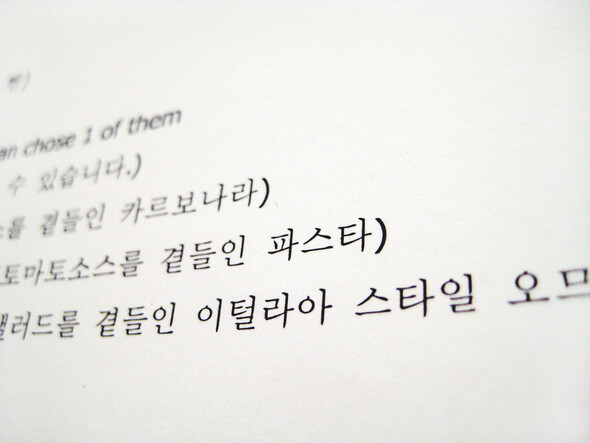 an chose 1 of them
수 있습니다.)
를 곁들인 카르보나라)
토마토소스를 곁들인 파스타)
샐러드를 곁들인 이털라아 스타일 오므